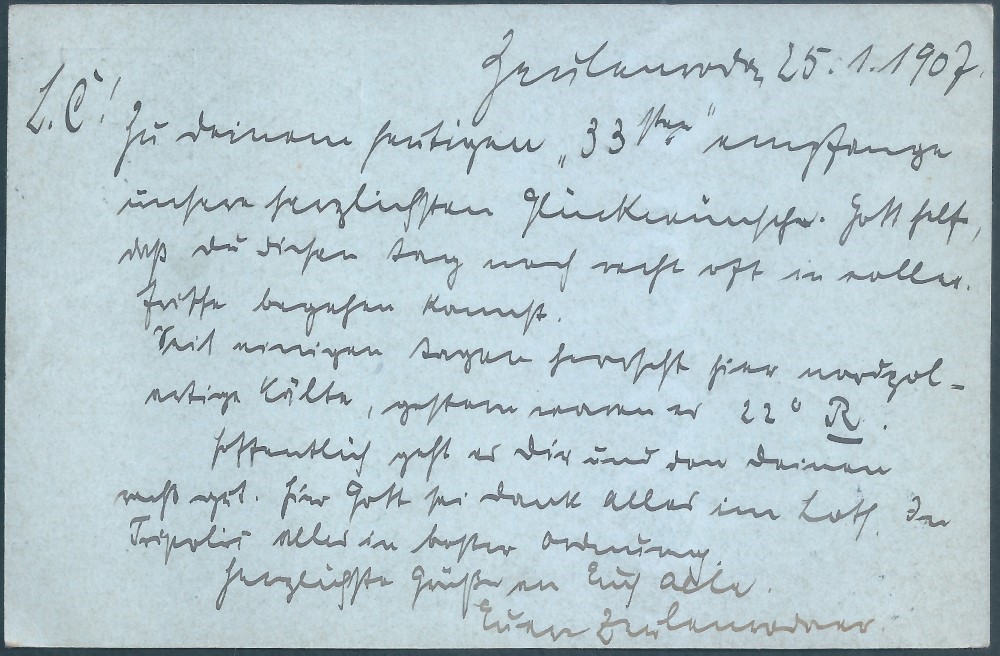 Zeulenroda, 25.1.1907.
L. C!
Zu deinem heutigen „33sten" empfange
unsere herzlichsten Glückwünsche. Gott helfe,
daß du diesen Tag noch recht oft in voller
Frische begehen kannst.
Seit einigen Tagen herrscht hier nordpol-
artige Kälte, gestern waren es 22° R.
Hoffentlich geht es Dir und den Deinen
recht gut. Hier Gott sei Dank alles im Loth. In
Tripolis alles in bester Ordnung.
Herzlichste Grüße an Euch alle.
Euere Zeulenrodaer.